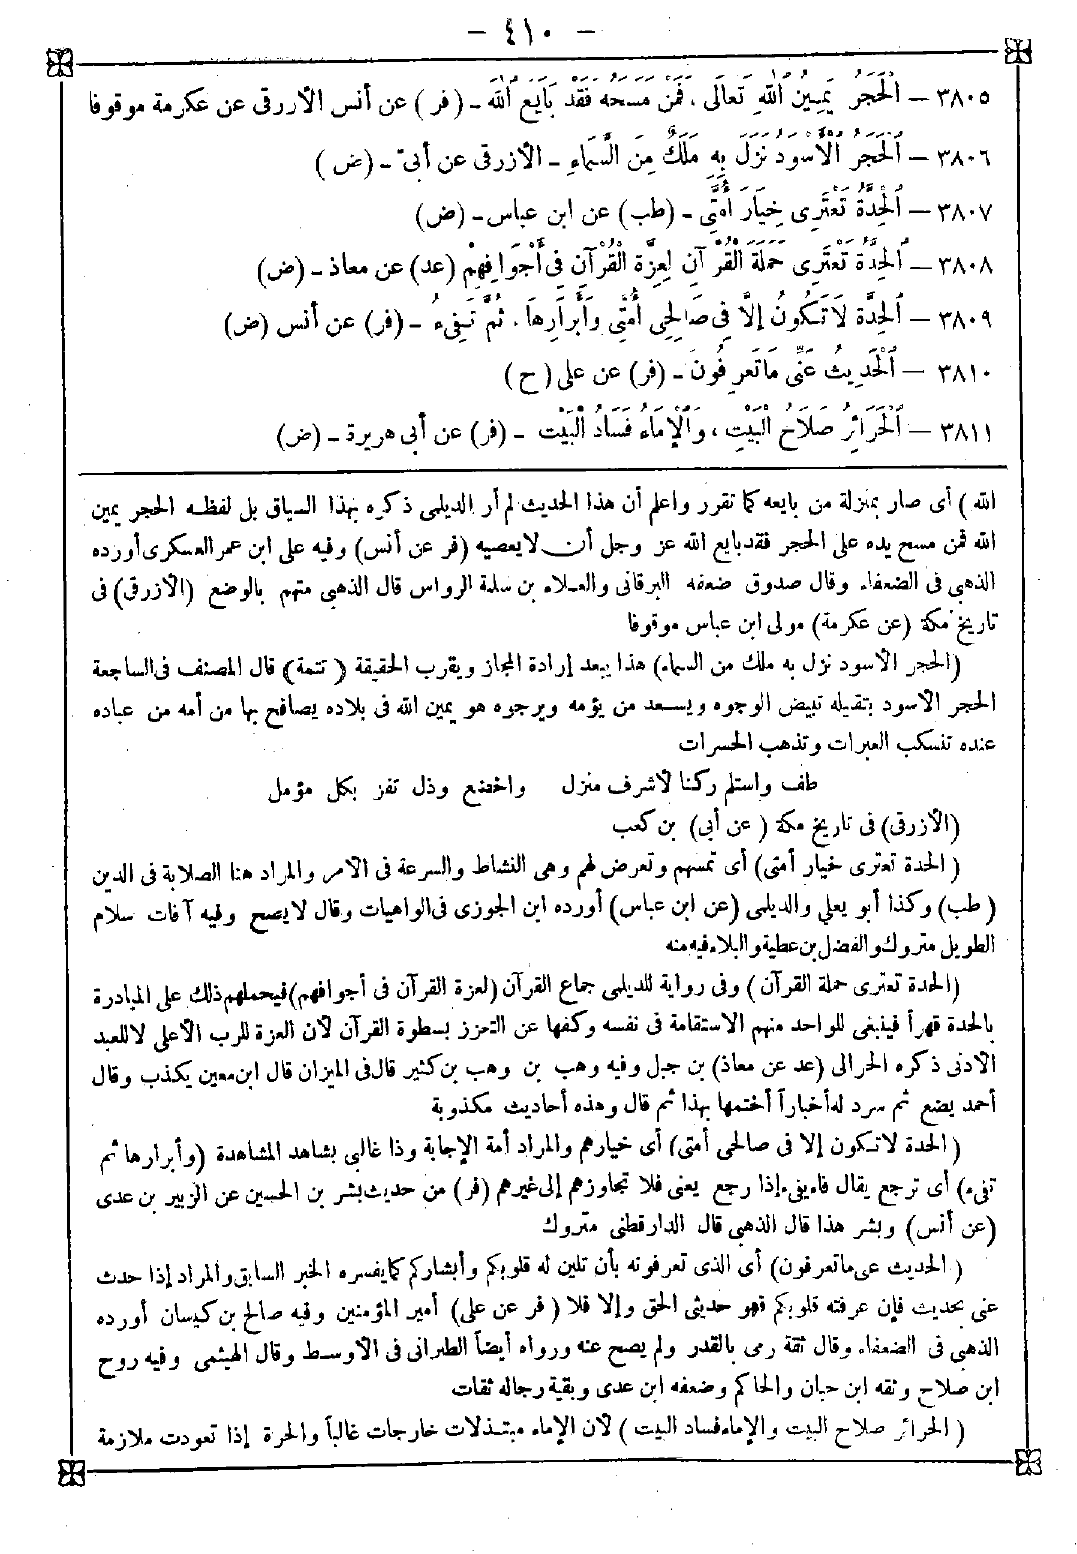 - ٤١٠ -
٣٨٠٥ - اَلْحَجَرُ يَمِينُ اللهِ تَعَالَى، فَمَنْ مَسَحَهُ فَقَدْ بَايَعَ اللهَ - (فر) عن أنس الأزرقى عن عكرمة موقوفا
٣٨٠٦ - اَلْحَجَرُ الْأَسْوَدُ نَزَلَ بِهِ مَلَكٌ مِنَ السَّمَاءِ - الأزرقى عن أبىّ - (ض)
٣٨٠٧ - اَلْحِدَّةُ تَعْتَرِى خِيَارَ أُمَّتِى - (طب) عن ابن عباس - (ض)
٣٨٠٨ - اَلْحِدَّةُ تَعْتَرِى حَمَلَةَ الْقُرْآنِ لِعِزَّةِ الْقُرْآنِ فِى أَجْوَافِهِمْ (عد) عن معاذ - (ض)
٣٨٠٩ - اَلْحِدَّةُ لَا تَكُونُ إِلَّا فِى صَالِحِى أُمَّتِى وَأَبْرَارِهَا، ثُمَّ تَفِىءُ - (فر) عن أنس (ض)
٣٨١٠ - اَلْحَدِيثُ عَنِّى مَا تَعْرِفُونَ - (فر) عن على (ح)
٣٨١١ - اَلْحَرَائِرُ صَلَاحُ الْبَيْتِ، وَالْإِمَاءُ فَسَادُ الْبَيْتِ - (فر) عن أبى هريرة - (ض)
الله) أى صار بمنزلة من بايعه كما تقرر واعلم أن هذا الحديث لم أر الديلمى ذكره بهذا السياق بل لفظه الحجر يمين
الله فمن مسح يده على الحجر فقد بايع الله عز وجل أن لا يعصيه (فر عن أنس) وفيه على ابن عمر العسكرى أورده
الذهبى فى الضعفاء وقال صدوق ضعفه البرقانى والعلاء بن سلمة الرواس قال الذهبى متهم بالوضع (الأزرقى) فى
تاريخ مكة (عن عكرمة) مولى ابن عباس موقوفا
(الحجر الأسود نزل به ملك من السماء) هذا يبعد إرادة المجاز ويقرب الحقيقة (تتمة) قال المصنف فى الساجعة
الحجر الأسود بتقبيله تبيض الوجوه ويسعد من يؤمه ويرجوه هو يمين الله فى بلاده يصافح بها من أمه من عباده
عنده تنسكب العبرات وتذهب الحسرات
طف واستلم ركنا لأشرف منزل واخضع وذل تفز بكل مؤمل
(الأزرقى) فى تاريخ مكة (عن أبى) بن كعب
(الحدة تعترى خيار أمتى) أى تمسهم وتعرض لهم وهى النشاط والسرعة فى الأمر والمراد هنا الصلابة فى الدين
(طب) وكذا أبو يعلى والديلمى (عن ابن عباس) أورده ابن الجوزى فى الواهيات وقال لا يصح وفيه آفات سلام
الطويل متروك والفضل بن عطية والبلاء فيه منه
(الحدة تعترى حملة القرآن) وفى رواية للديلمى جماع القرآن (لعزة القرآن فى أجوافهم) فيحملهم ذلك على المبادرة
بالحدة قهراً فينبغى للواحد منهم الاستقامة فى نفسه وكفها عن التعزز بسطوة القرآن لأن العزة للرب الأعلى لا للعبد
الأدنى ذكره الحرالى (عد عن معاذ) بن جبل وفيه وهب بن وهب بن كثير قال فى الميزان قال ابن معين يكذب وقال
أحمد يضع ثم سرد له أخباراً أختمها بهذا ثم قال وهذه أحاديث مكذوبة
(الحدة لا تكون إلا فى صالحى أمتى) أى خيارهم والمراد أمة الإجابة وذا غالبى بشاهد المشاهدة (وأبرارها ثم
تفىء) أى ترجع يقال فاء يفىء إذا رجع يعنى فلا تجاوزهم إلى غيرهم (فر) من حديث بشر بن الحسين عن الزبير بن عدى
(عن أنس) وبشر هذا قال الذهبى قال الدارقطنى متروك
(الحديث عنى ما تعرفون) أى الذى تعرفونه بأن تلين له قلوبكم وأبشاركم كما يفسره الخبر السابق والمراد إذا حدث
عنى بحديث فإن عرفته قلوبكم فهو حديثى الحق وإلا فلا (فر عن على) أمير المؤمنين وفيه صالح بن كيسان أورده
الذهبى فى الضعفاء وقال ثقة رمى بالقدر ولم يصح عنه ورواه أيضاً الطبرانى فى الأوسط وقال الهيثمى وفيه روح
ابن صلاح وثقه ابن حبان والحاكم وضعفه ابن عدى وبقية رجاله ثقات
(الحرائر صلاح البيت والإماء فساد البيت) لأن الإماء مبتذلات خارجات غالباً والحرة إذا تعودت ملازمة